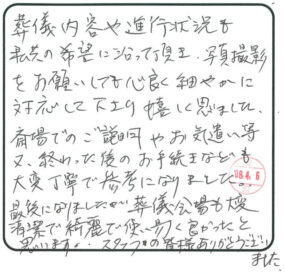 葬儀内容や進行状況も
私共の希望に沿って頂き、写真撮影
をお願いしても心良く細やかに
対応して下さり嬉しく思いました。
斎場でのご説明やお気遣い等
又、終わった後のお手続きなども
大変丁寧で参考になりました。
最後になりましたが葬儀会場も大変
清潔で綺麗で使い易く良かったと
思います。スタッフの皆様ありがとうござい
ました